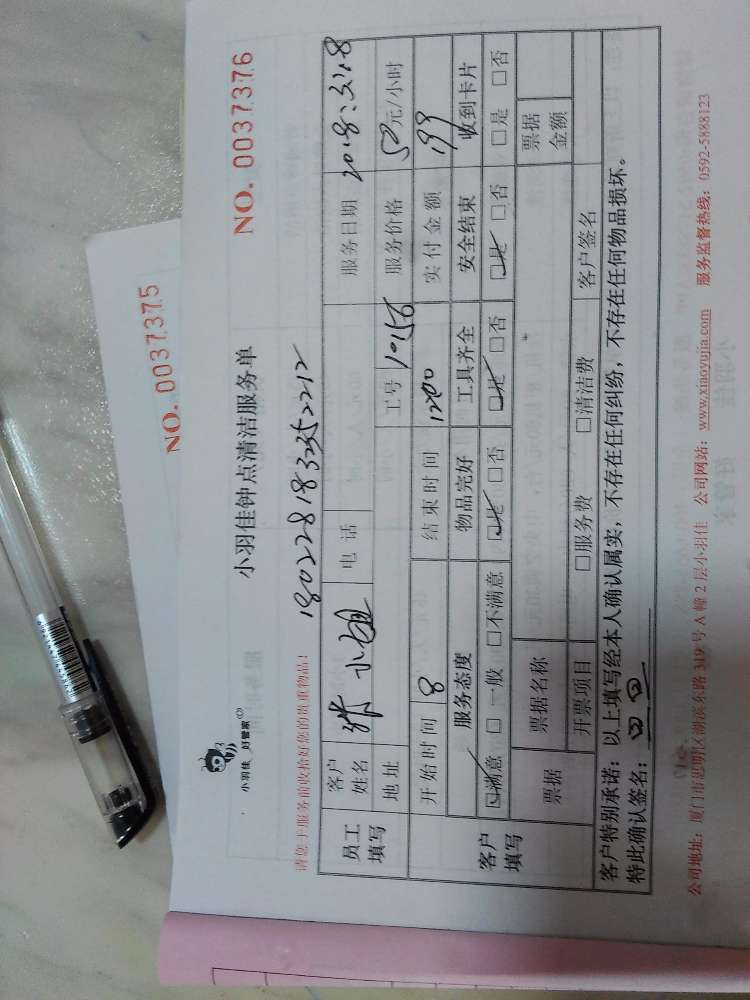 NO. 0037375
小羽佳 好管家
小羽佳钟点清洁服务单
NO. 0037376
请您于服务前收拾好您的贵重物品!
1802281832352212
员工填写
客户姓名 张小姐 电话 服务日期 2018:3:1:8
地址 工号 10156 服务价格 50元/小时
客户填写
开始时间 8 结束时间 1200 实付金额 199
服务态度 物品完好 工具齐全 安全结束 收到卡片
□满意 □一般 □不满意 □是 □否 □是 □否 □是 □否 □是 □否
票据 票据名称 票据金额
开票项目 □服务费 □清洁费 客户签名
客户特别承诺: 以上填写经本人确认属实,不存在任何纠纷,不存在任何物品损坏。
特此确认签名:
公司地址: 厦门市思明区湖滨东路 319 号 A 幢 2 层小羽佳 公司网站: www.xiaoyujia.com 服务监督热线: 0592-5888123